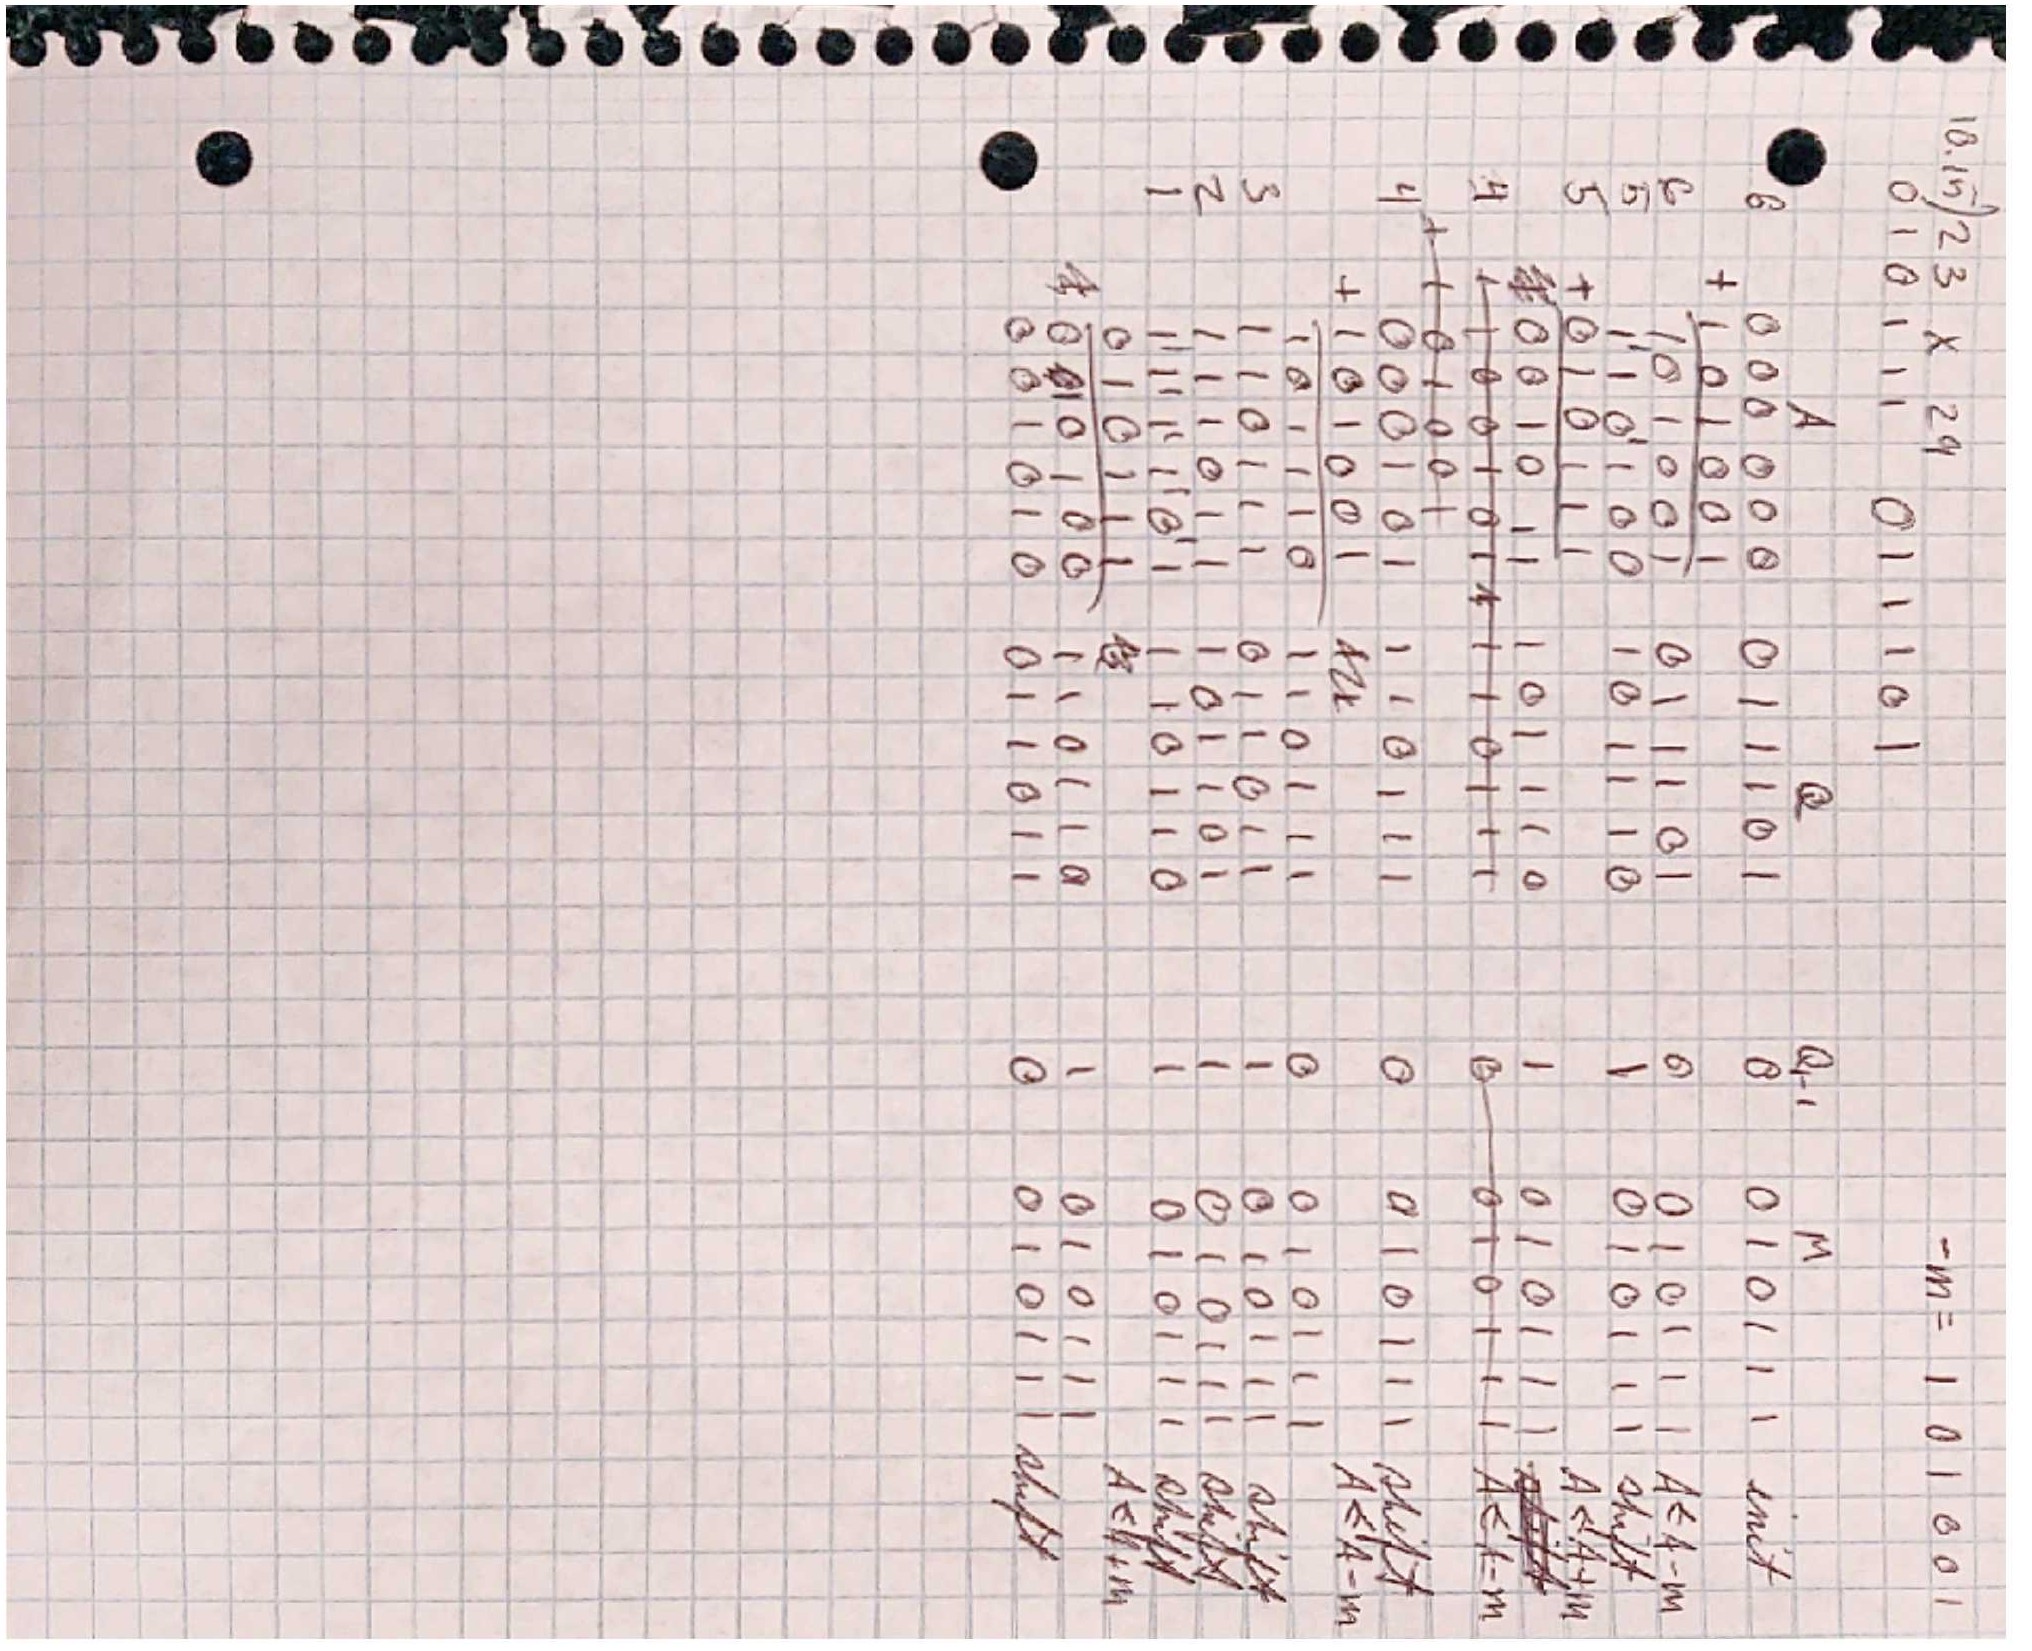 10.15) 23 x 29 -m = 1 0 1 0 0 1
0 1 0 1 1 1 0 1 1 1 0 1
A Q Q-1 M
6 0 0 0 0 0 0 0 1 1 1 0 1 0 0 1 0 1 1 1 init
+ 1 0 1 0 0 1
6 1 0 1 0 0 1 0 1 1 1 0 1 0 0 1 0 1 1 1 A ≤ A - m
5 1 1 0 1 0 0 1 0 1 1 1 0 1 0 1 0 1 1 1 shift
5 + 0 1 0 1 1 1 A ≤ A + m
0 0 1 0 1 1 1 0 1 1 1 0 1 0 1 0 1 1 1 shift
4 1 1 0 0 1 0 1 1 1 0 1 1 1 0 0 1 0 1 1 1 A ≤ A - m
+ 1 0 1 0 0 1
4 0 0 0 1 0 1 1 1 0 1 1 1 0 0 1 0 1 1 1 shift
+ 1 0 1 0 0 1 A ≤ A - m
1 0 1 1 1 0 1 1 0 1 1 1 0 0 1 0 1 1 1
3 1 1 0 1 1 1 0 1 1 0 1 1 1 0 1 0 1 1 1 shift
2 1 1 1 0 1 1 1 0 1 1 0 1 1 0 1 0 1 1 1 shift
1 1 1 1 1 0 1 1 1 0 1 1 0 1 0 1 0 1 1 1 shift
0 1 0 1 1 1 A ≤ A + m
0 1 0 1 0 0 1 1 0 1 1 0 1 0 1 0 1 1 1
0 0 1 0 1 0 0 1 1 0 1 1 0 0 1 0 1 1 1 shift